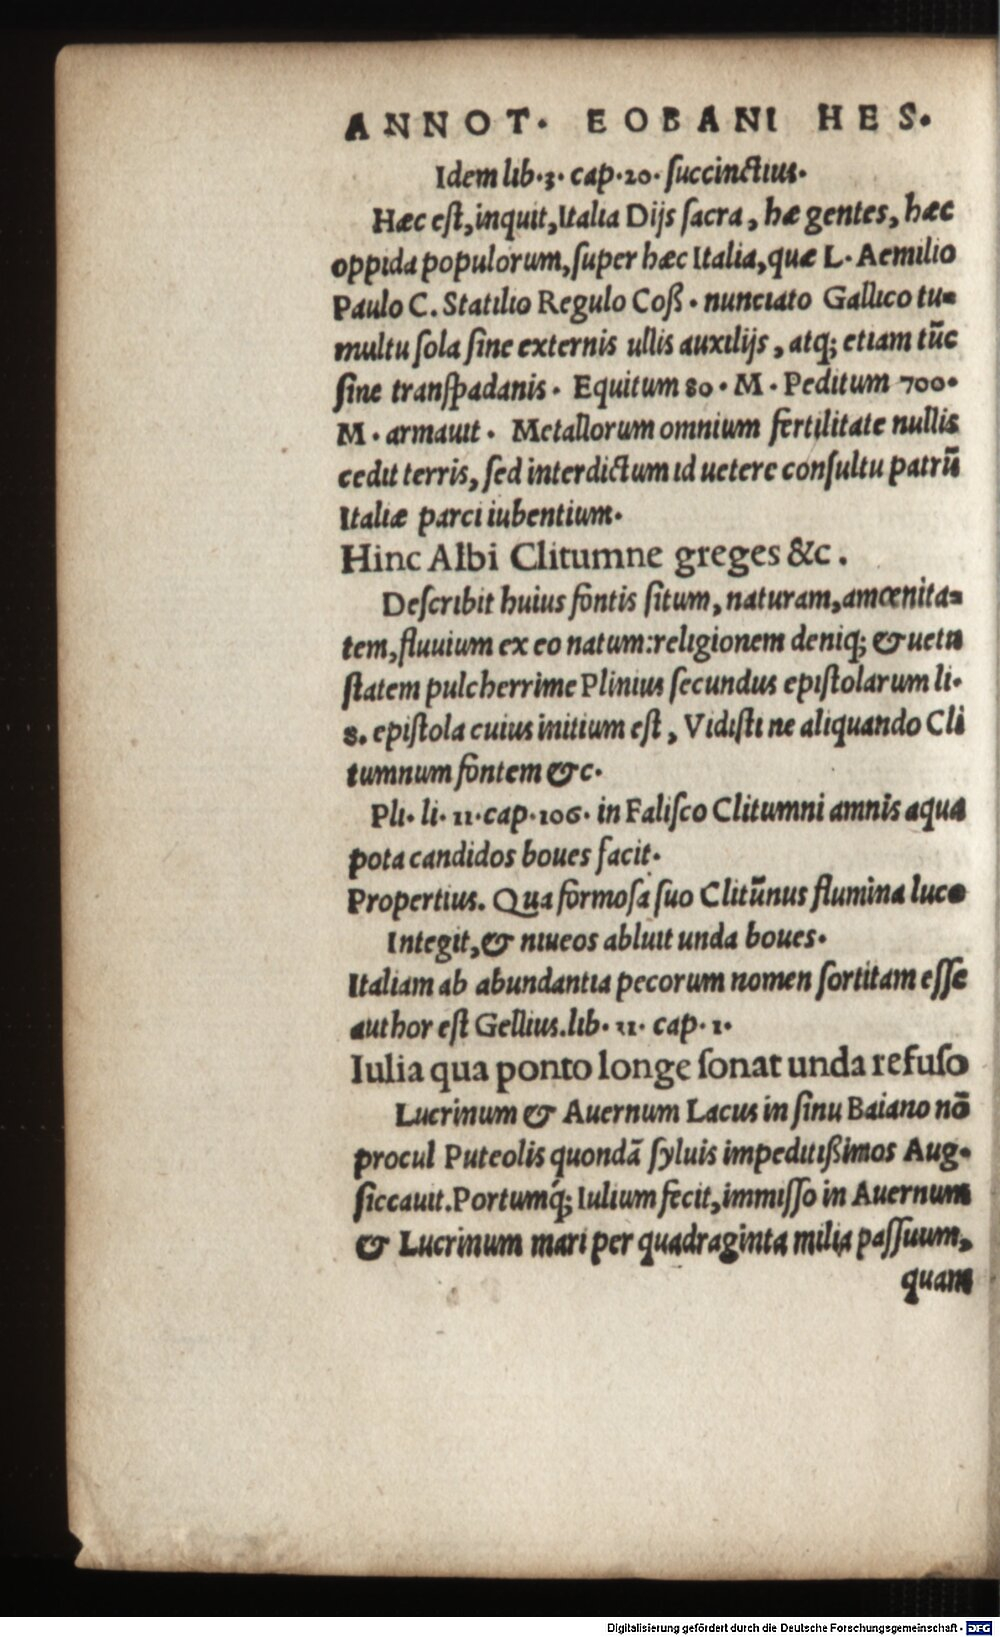 ANNOT. EOBANI HES.
Idem lib. 3. cap. 20. ſuccinctius.
Hæc eſt, inquit, Italia Dijs ſacra, hæ gentes, hæc
oppida populorum, ſuper hæc Italia, quæ L. Aemilio
Paulo C. Statilio Regulo Coß. nunciato Gallico tu-
multu ſola ſine externis ullis auxilijs, atq; etiam tūc
ſine tranſpadanis. Equitum 80. M. Peditum 700.
M. armauit. Metallorum omnium fertilitate nullis
cedit terris, ſed interdictum id uetere conſultu patrū
Italiæ parci iubentium.
Hinc Albi Clitumne greges &c.
Deſcribit huius fontis ſitum, naturam, amœnita-
tem, fluuium ex eo natum: religionem deniq; & uetu
ſtatem pulcherrime Plinius ſecundus epiſtolarum li.
8. epiſtola cuius initium eſt, Vidiſti ne aliquando Cli
tumnum fontem &c.
Pli. li. 11. cap. 106. in Faliſco Clitumni amnis aqua
pota candidos boues facit.
Propertius. Qua formoſa ſuo Clitūnus flumina luco
Integit, & niueos abluit unda boues.
Italiam ab abundantia pecorum nomen ſortitam eſſe
author eſt Gellius. lib. 11. cap. 1.
Iulia qua ponto longe ſonat unda refuſo
Lucrinum & Auernum Lacus in ſinu Baiano nō
procul Puteolis quondā ſyluis impeditißimos Aug.
ſiccauit. Portumq́; Iulium fecit, immiſſo in Auernum
& Lucrinum mari per quadraginta milia paſſuum,
quam
Digitalisierung gefördert durch die Deutsche Forschungsgemeinschaft - DFG